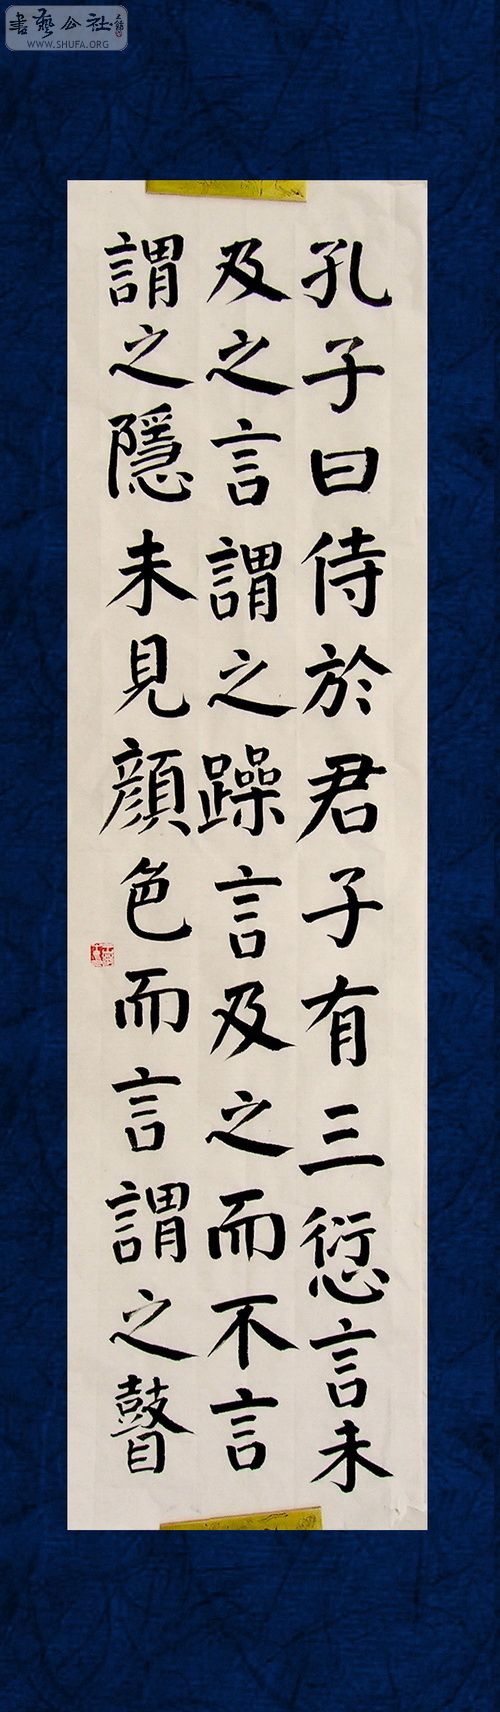 孔子曰侍於君子有三愆言未
及之言謂之躁言及之而不言
謂之隱未見顏色而言謂之瞽
書藝公社
WWW.SHUFA.ORG